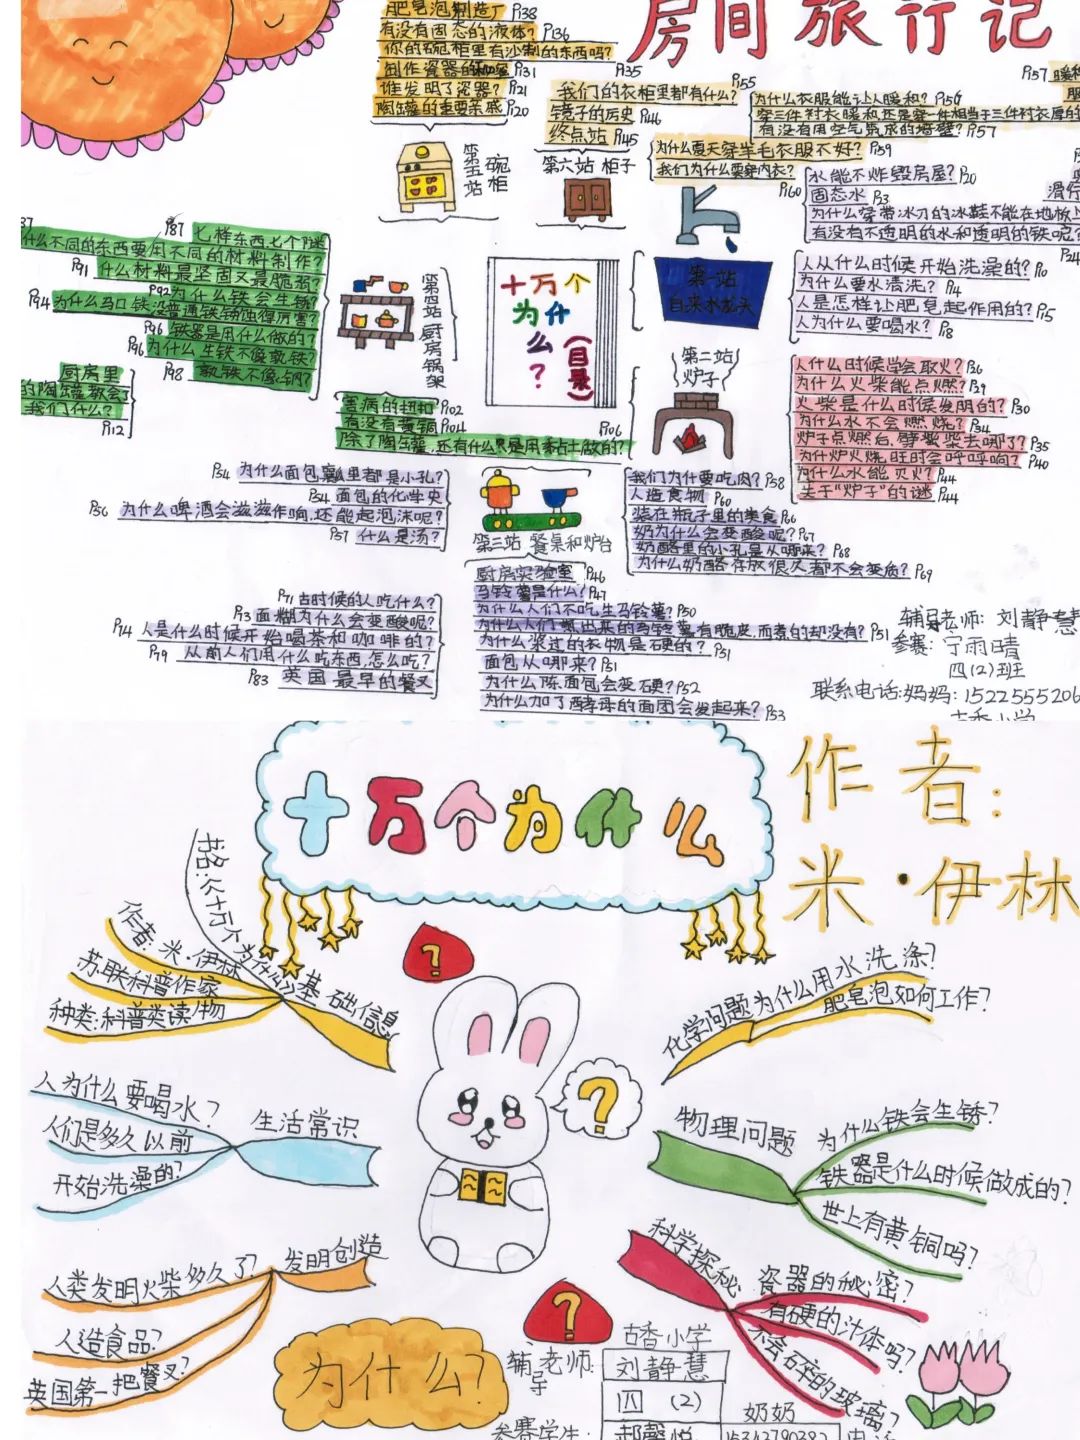 房间旅行记
肥皂泡制造厂 P138
有没有固态的液体? P136
你的碗柜里有沙制的东西吗? P135
制作瓷器的秘密 P131
谁发明了瓷器? P121
陶罐的重要亲戚 P120
第五站 碗柜
我们的衣柜里都有什么? P155
镜子的历史 P146
终点站 P145
第六站 柜子
P157
为什么衣服能让人暖和? P156
穿三件衬衣暖和还是穿一件相当于三件衬衣厚的
有没有用空气筑成的墙壁? P157
为什么夏天穿羊毛衣服不好? P159
我们为什么要穿内衣? P160
水能不炸毁房屋? P20
固态水 P3
为什么穿带冰刀的冰鞋不能在地板上
滑行
有没有不透明的水和透明的铁呢? P24
第一站
自来水龙头
人从什么时候开始洗澡的? P0
为什么要水清洗? P4
人是怎样让肥皂起作用的? P5
人为什么要喝水? P8
P87 七样东西七个谜
什么不同的东西要用不同的材料制作?
P91 什么材料最坚固又最脆弱?
P92 为什么铁会生锈?
P94 为什么马口铁没普通铁锈蚀得厉害?
P96 铁器是用什么做的?
P96 为什么生铁不像软铁?
P98 软铁不像钢?
厨房里
的陶罐教会了
我们什么?
P112
第四站 厨房锅架
害病的纽扣 P102
有没有黄铜 P104
除了陶罐,还有什么是用黏土做的? P106
十万个
为什
么?
(目录)
第二站
炉子
人什么时候学会取火? P26
为什么火柴能点燃? P29
火柴是什么时候发明的? P30
为什么水不会燃烧? P34
炉子点燃后,劈柴柴去哪了? P35
为什炉火烧旺时会呼呼响? P40
为什么水能灭火? P44
关于“炉子”的谜 P44
P54 为什么面包瓤里都是小孔?
P54 面包的化学史
P56 为什么啤酒会滋滋作响,还能起泡沫呢?
P57 什么是汤?
第三站 餐桌和炉台
我们为什要吃肉? P58
人造食物 P60
装在瓶子里的美食 P66
奶为什么会变酸呢? P67
奶酪里的小孔是从哪来? P68
为什么奶酪存放很久都不会变质? P69
P71 古时候的人吃什么?
P73 面糊为什么会变酸呢?
P74 人是什么时候开始喝茶和咖啡的?
P79 从前人们用什么吃东西,怎么吃?
P83 英国最早的餐叉
厨房实验室 P46
马铃薯是什么? P47
为什么人们不吃生马铃薯? P50
为什么人们烤出来的马铃薯有脆皮,而煮的却没有? P51
为什么浆过的衣物是硬的? P51
面包从哪来? P51
为什么陈面包会变硬? P52
为什么加了酵母的面团会发起来? P53
辅导老师: 刘静慧
参赛: 宁雨晴
四(2)班
联系电话:妈妈:1522555206
古香小学
十万个为什么
作者:
米·伊林
书名:《十万个为什么》
作者:米·伊林
苏联科普作家
种类:科普类读物
基础信息
化学问题
为什么用水洗涤?
肥皂泡如何工作?
人为什么要喝水?
人们是多久以前
开始洗澡的?
生活常识
物理问题
为什么铁会生锈?
铁器是什么时候做成的?
世上有黄铜吗?
人类发明火柴多久了?
人造食品?
英国第一把餐叉?
发明创造
科学探秘
瓷器的秘密?
有硬的汁体吗?
不会碎的玻璃?
为什么?
古香小学
辅导老师: 刘静慧
四 (2)
参赛学生: 郝馨悦
奶奶
15343790382
电话